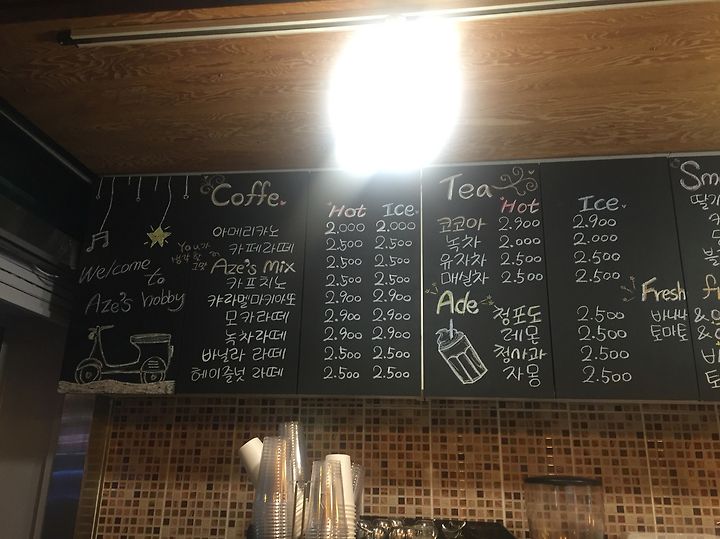 Welcome
to
Aze's hobby
Coffe
Hot Ice
아메리카노 2.000 2.000
카페라떼 2.500 2.500
Aze's Mix 2.500 2.500
카프치노 2.500 2.500
캬라멜마키아또 2.900 2.900
모카라떼 2.900 2.900
녹차라떼 2.900 2.900
바닐라 라떼 2.500 2.500
헤이즐넛 라떼 2.500 2.500
Tea
Hot Ice
코코아 2.900 2.900
녹차 2.000 2.000
유자차 2.500 2.500
매실차 2.500 2.500
Ade
청포도 2.500
레몬 2.500
청사과 2.500
자몽 2.500
Fresh
바나나
토마토
Sm
딸기